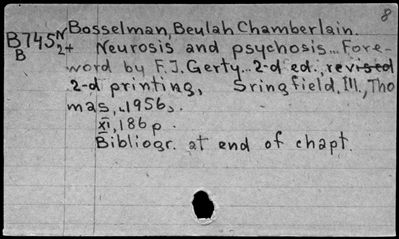 8
B745N Bosselman, Beulah Chamberlain.
B 2+ Neurosis and psychosis... Fore-
word by F.J. Gerty... 2-d ed., revised
2-d printing, Sringfield, Ill., Tho
mas, 1956.
XI, 186 p.
Bibliogr. at end of chapt.